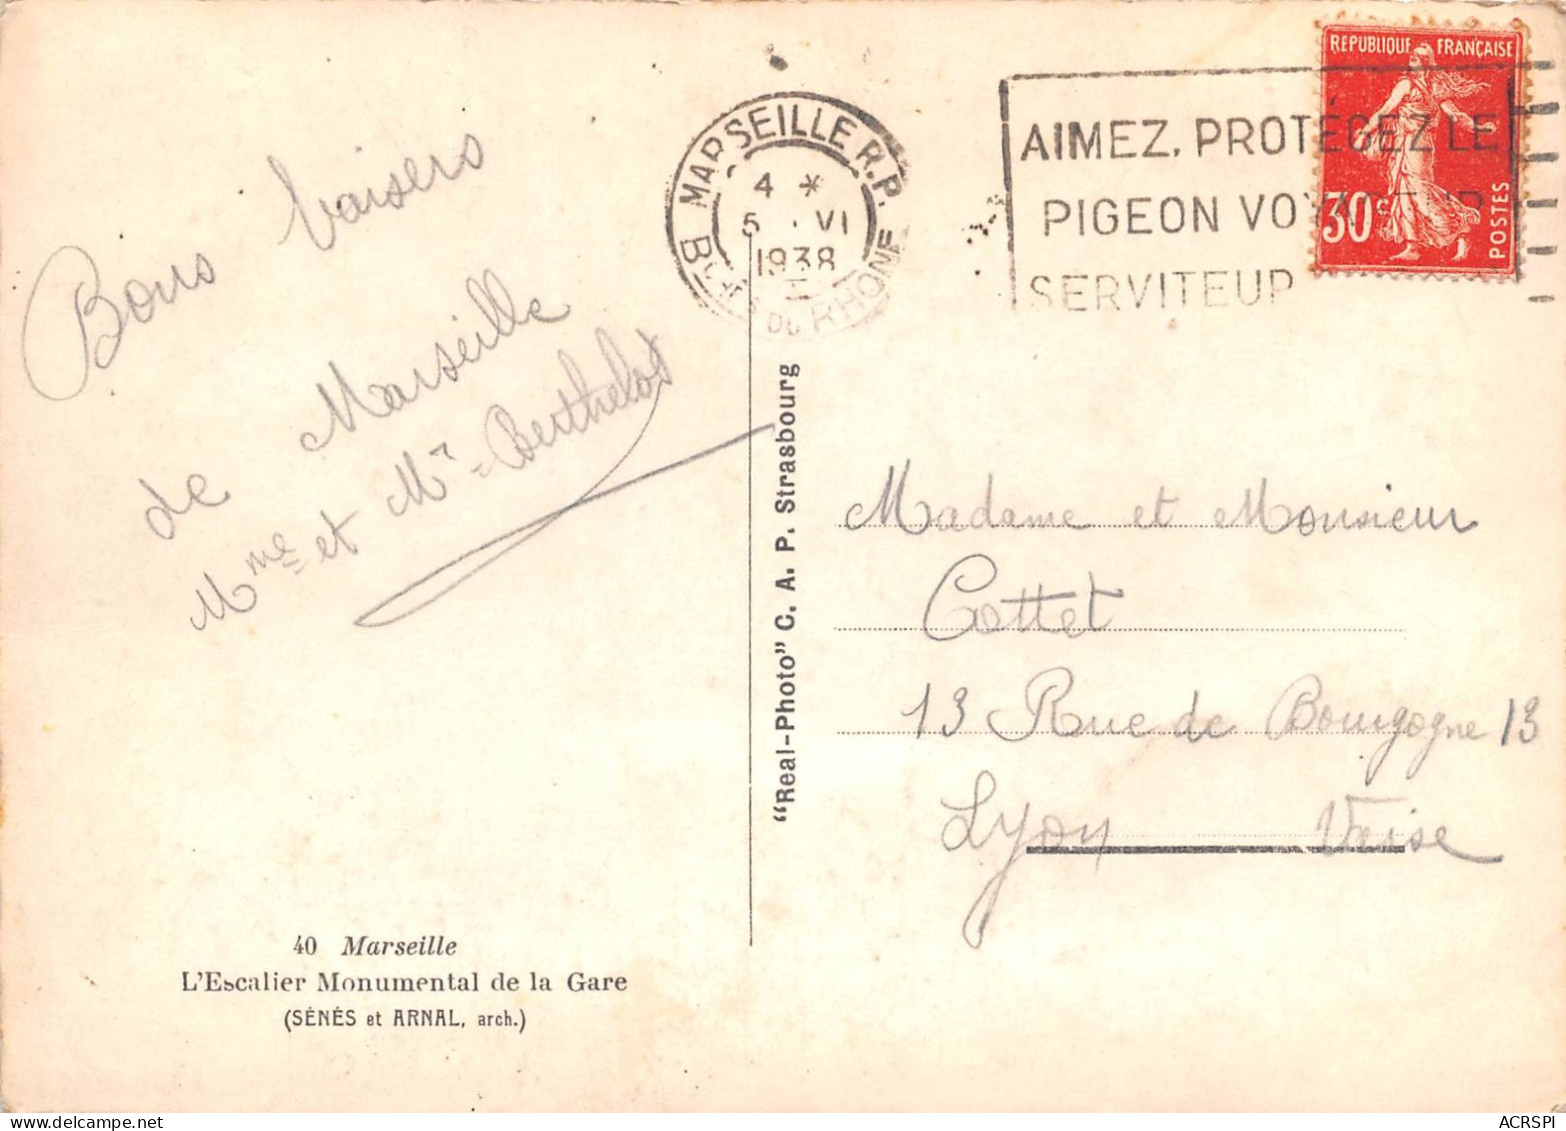 Bons baisers
de Marseille
Mme et Mr - Berthelot
40 Marseille
L'Escalier Monumental de la Gare
(SÉNÉS et ARNAL, arch.)
"Real-Photo" C. A. P. Strasbourg
MARSEILLE R.P.
4 *
5 VI
1938
DU RHONE
AIMEZ, PROTÉGEZ LE
PIGEON VOYAGEUR
SERVITEUR
REPUBLIQUE FRANÇAISE
30c
POSTES
Madame et Monsieur
Cottet
13 Rue de Bourgogne 13
Lyon Vaise
ACRSPI